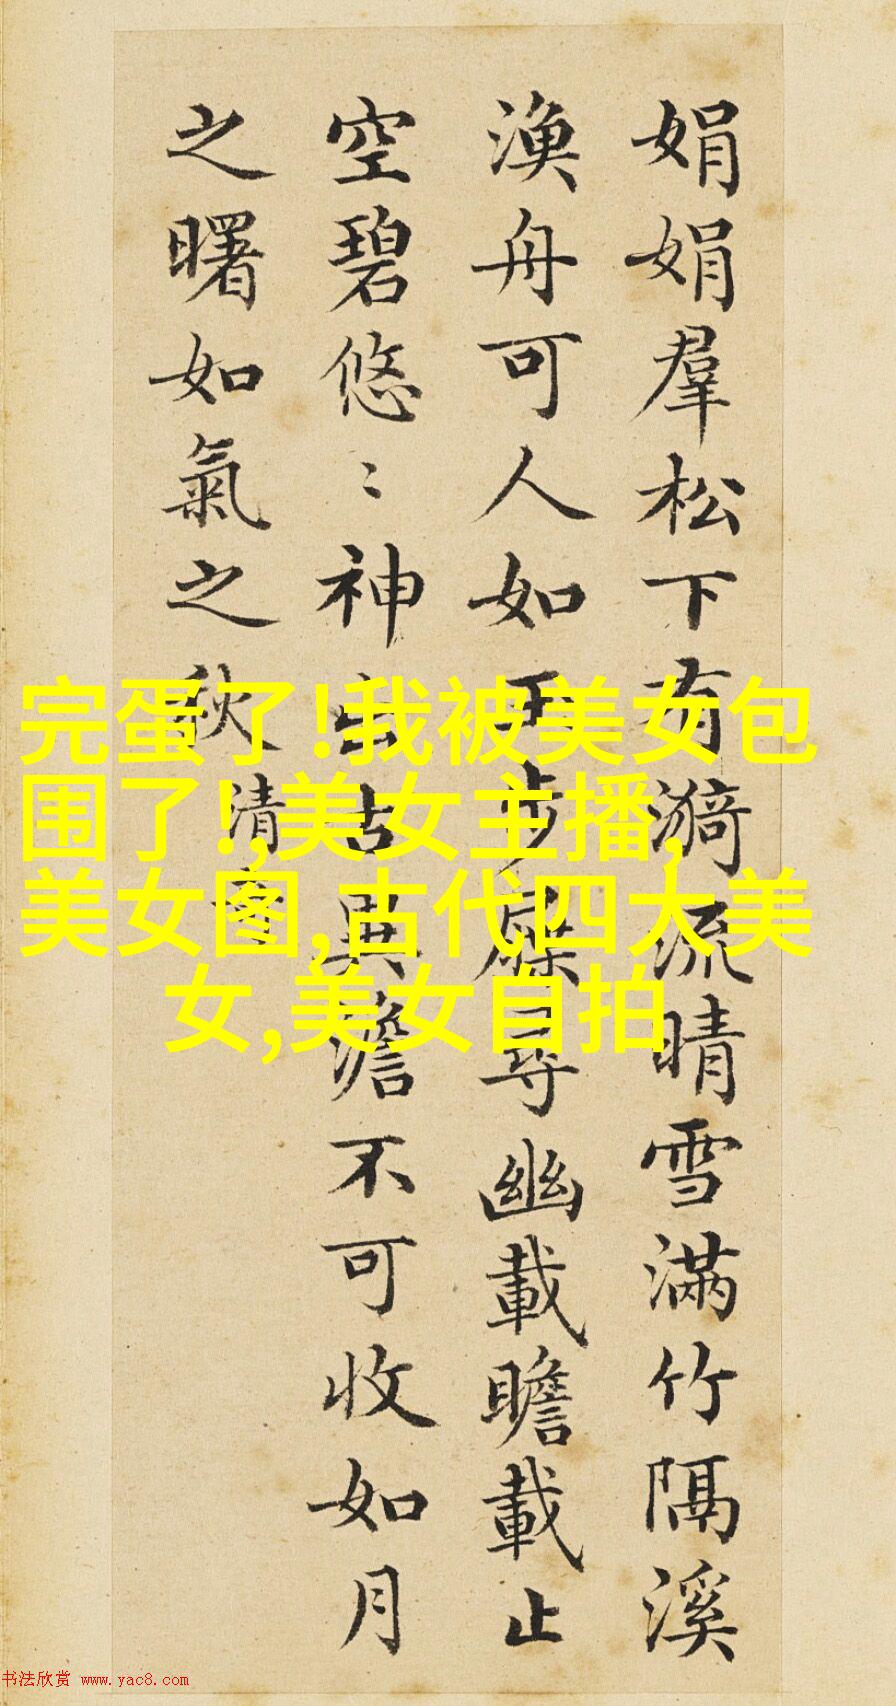 娟娟羣松下有漪流晴雪滿竹隔溪
漁舟可人如玉步屧尋幽載瞻載止
空碧悠〻神出古異澹不可收如月
之曙如氣之秋 清奇
完蛋了!我被美女包
围了!,美女主播,
美女图,古代四大美
女,美女自拍
书法欣赏 www.yac8.com